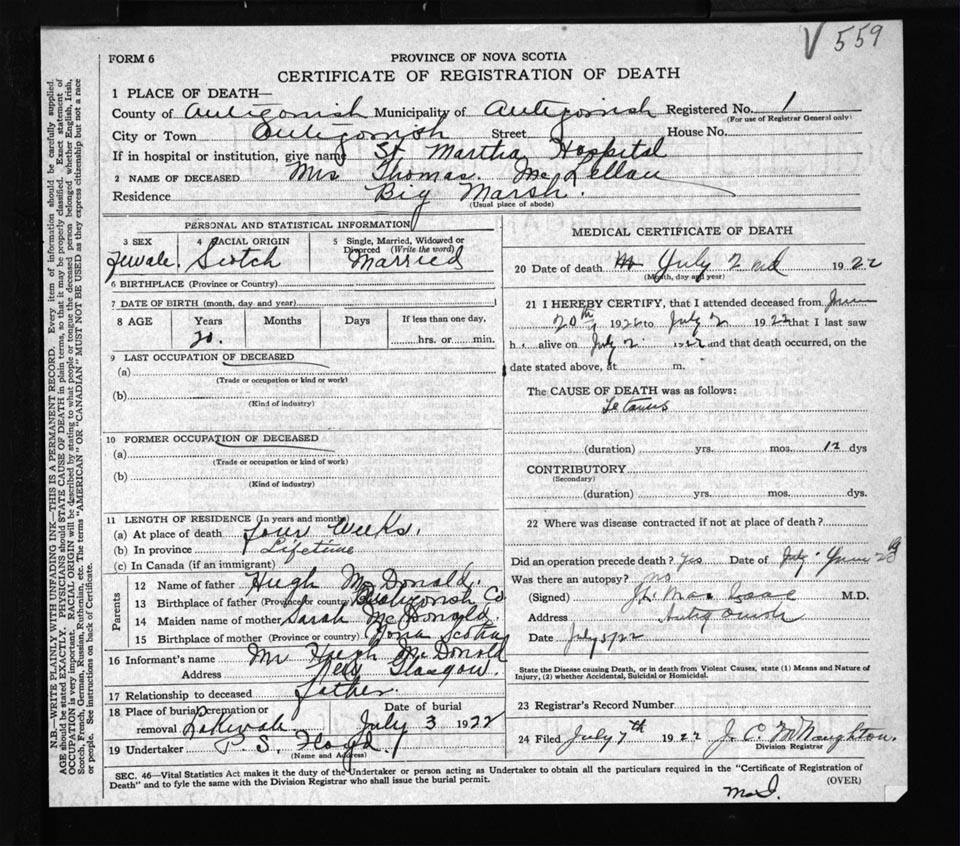 V 559
FORM 6
PROVINCE OF NOVA SCOTIA
CERTIFICATE OF REGISTRATION OF DEATH
1 PLACE OF DEATH—
County of Antigonish Municipality of Antigonish Registered No. 1
(For use of Registrar General only)
City or Town Antigonish Street House No.
If in hospital or institution, give name St Martha Hospital
2 NAME OF DECEASED Mrs Thomas. McLellan
Residence Big Marsh.
(Usual place of abode)
PERSONAL AND STATISTICAL INFORMATION
3 SEX 4 RACIAL ORIGIN 5 Single, Married, Widowed or Divorced (Write the word)
Female. Scotch Married
6 BIRTHPLACE (Province or Country)
7 DATE OF BIRTH (month, day and year)
8 AGE Years Months Days If less than one day,
hrs. or min.
9 LAST OCCUPATION OF DECEASED
(a)
(Trade or occupation or kind or work)
(b)
(Kind of industry)
10 FORMER OCCUPATION OF DECEASED
(a)
(Trade or occupation or kind of work)
(b)
(Kind of industry)
11 LENGTH OF RESIDENCE (In years and months)
(a) At place of death four Weeks.
(b) In province Lifetime
(c) In Canada (if an immigrant)
Parents
12 Name of father Hugh McDonald.
13 Birthplace of father (Province or country) Antigonish Co
14 Maiden name of mother Sarah McDonald.
15 Birthplace of mother (Province or country) Nova Scotia
16 Informant's name Mr Hugh McDonald
Address New Glasgow.
17 Relationship to deceased father.
18 Place of burial cremation or removal Date of burial
July 3 1922
19 Undertaker P. S. Floyd.
(Name and Address)
MEDICAL CERTIFICATE OF DEATH
20 Date of death July 2nd 1922
(Month, day and year)
21 I HEREBY CERTIFY, that I attended deceased from June
20th 1922 to July 2 1922 that I last saw
h alive on July 2 1922 and that death occurred, on the
date stated above, at m.
The CAUSE OF DEATH was as follows:
Tetanus
(duration) yrs. mos. 12 dys
CONTRIBUTORY
(Secondary)
(duration) yrs. mos. dys.
22 Where was disease contracted if not at place of death?
Did an operation precede death? Yes Date of June
Was there an autopsy? no
(Signed) M.D.
Address Antigonish
Date July 5/22
State the Disease causing Death, or in death from Violent Causes, state (1) Means and Nature of
Injury, (2) whether Accidental, Suicidal or Homicidal.
23 Registrar's Record Number
24 Filed July 7th 1922 J. C. McNaughton.
Division Registrar
SEC. 46—Vital Statistics Act makes it the duty of the Undertaker or person acting as Undertaker to obtain all the particulars required in the "Certificate of Registration of
Death" and to fyle the same with the Division Registrar who shall issue the burial permit.
(OVER)
N.B.—WRITE PLAINLY WITH UNFADING INK—THIS IS A PERMANENT RECORD. Every item of information should be carefully supplied.
AGE should be stated EXACTLY. PHYSICIANS should STATE CAUSE OF DEATH in plain terms, so that it may be properly classified. Exact statement of
OCCUPATION is very important. RACIAL ORIGIN will be described by stating to what people or tongue the deceased person belonged whether English, Irish,
Scotch, French, German, Russian, Ruthenian, etc. The terms "AMERICAN" OR "CANADIAN" MUST NOT BE USED as they express citizenship but not a race
or people. See instructions on back of Certificate.